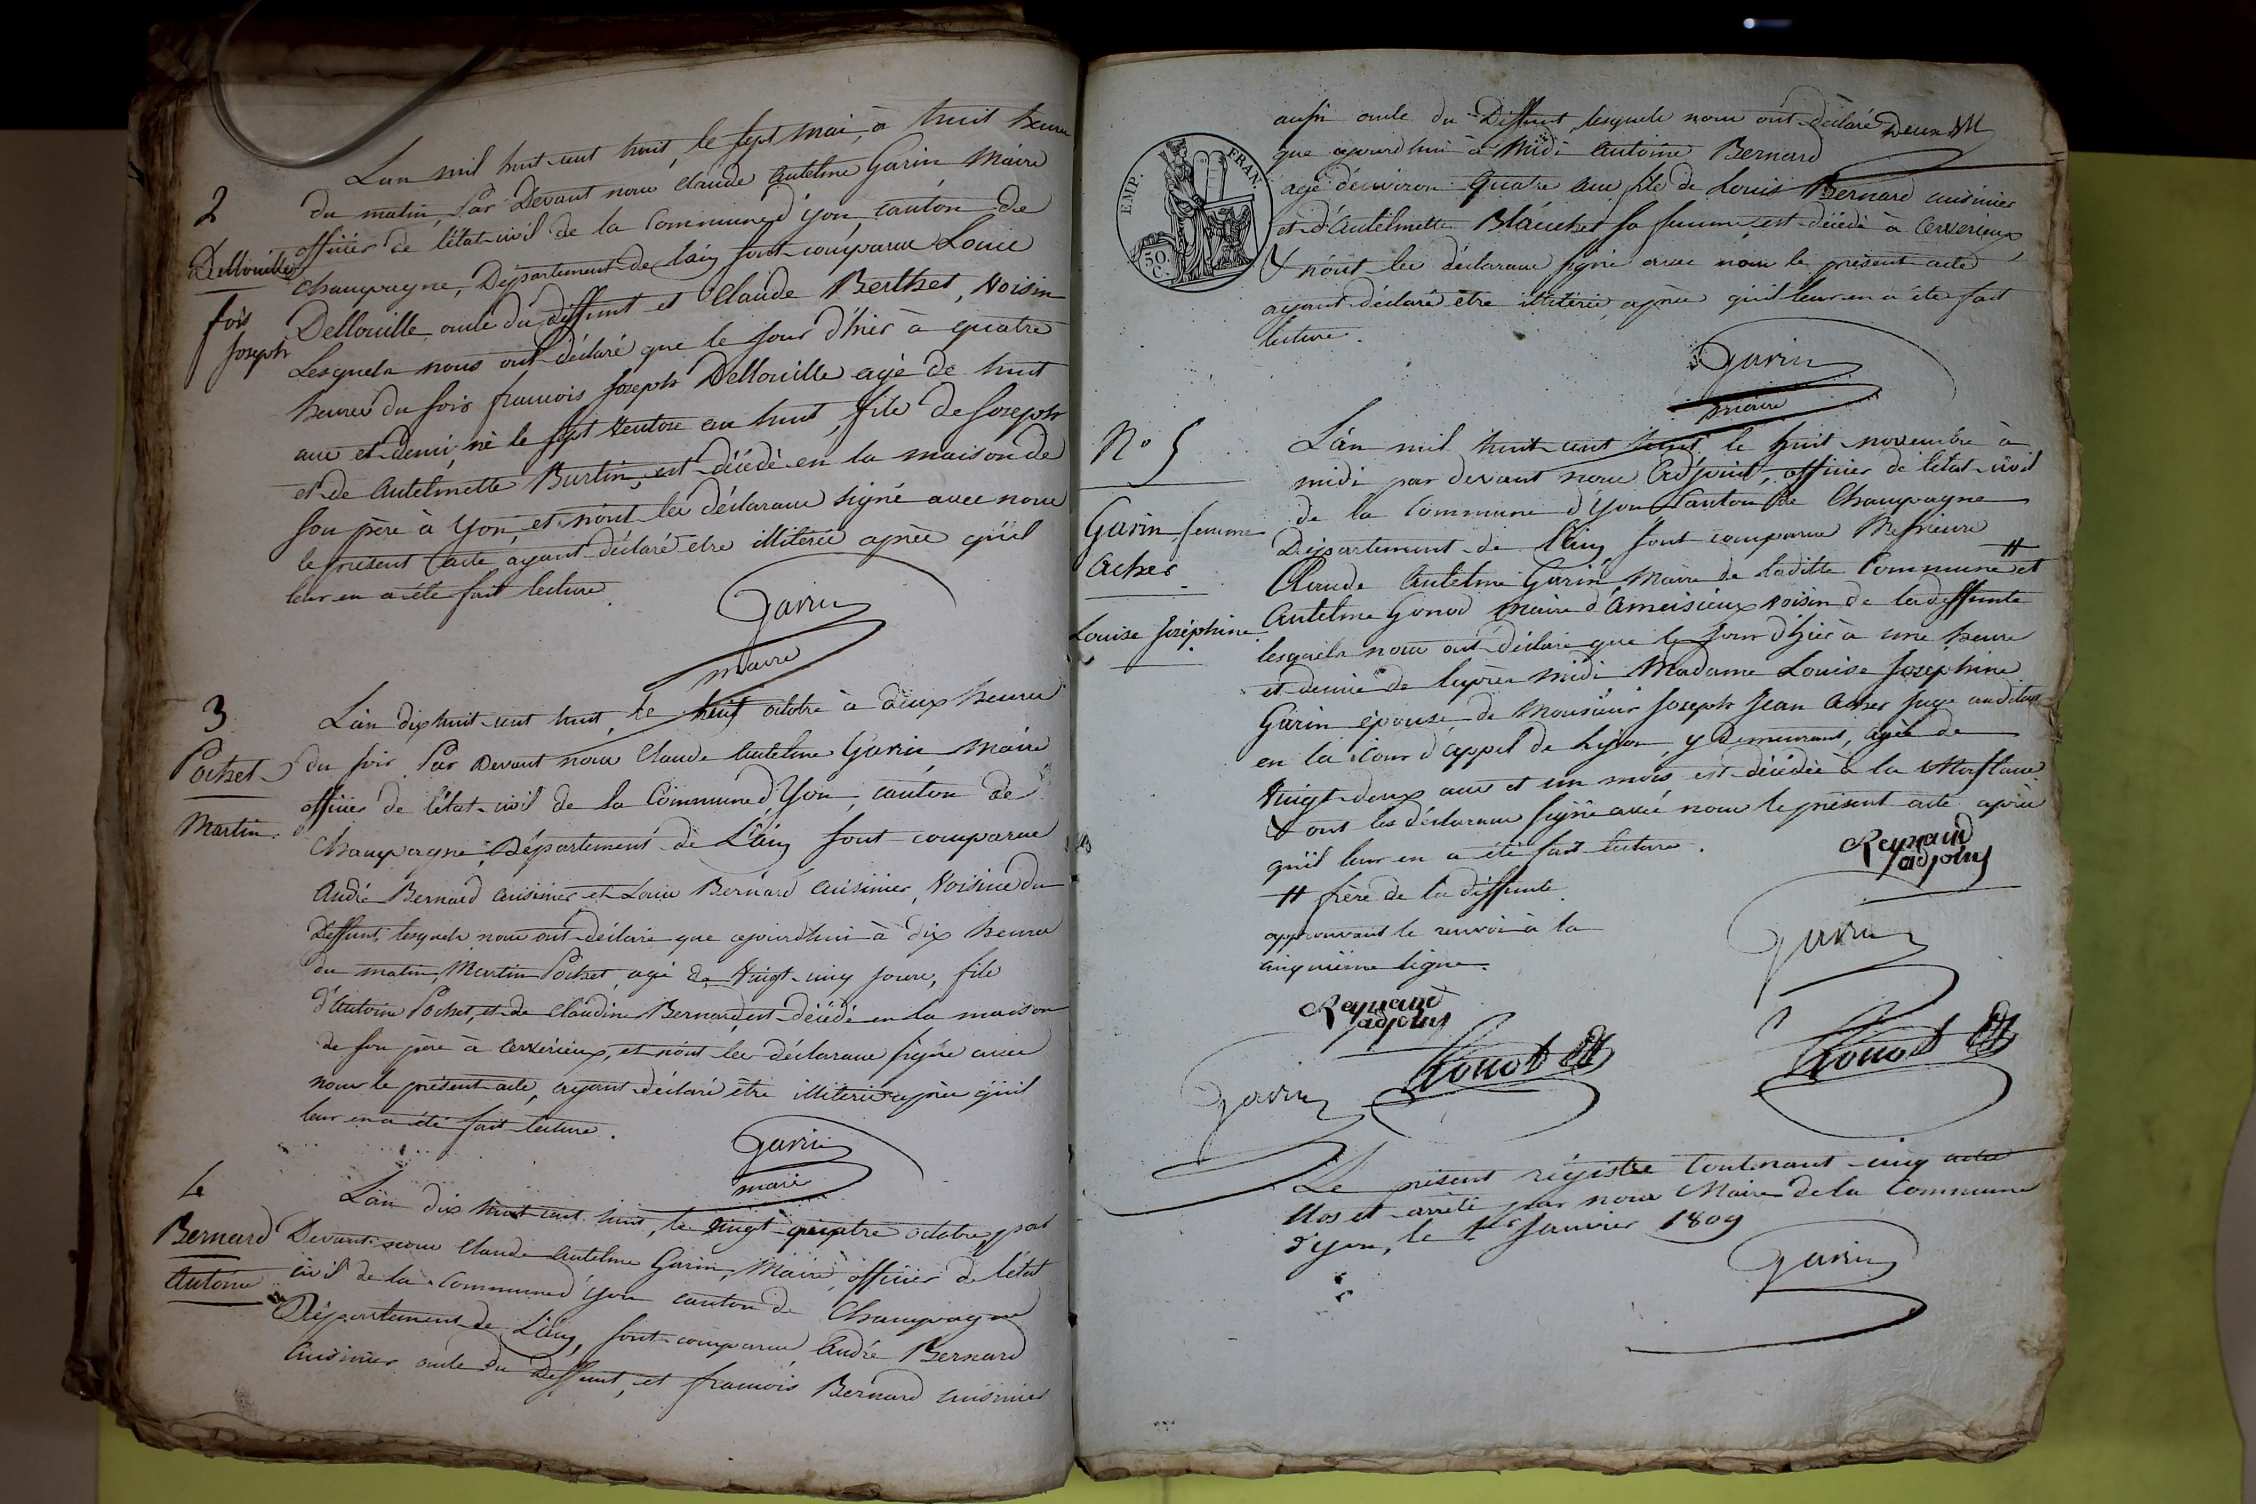 2
Dellouille
fois
Joseph
L'an mil huit cent huit, le sept mai, à huit heures
du matin, Par Devant nous Claude Antelme Garin Maire
officier de l'état-civil de la Commune d'Yon, canton de
Champagne, Département de l'ain sont comparus Louis
Dellouille oncle du deffunt et Claude Berthet, voisin
Lesquels nous ont déclaré que le jour d'hier à quatre
heures du soir françois Joseph Dellouille agé de huit
ans et demi, né le sept ventose an huit, fils de Joseph
et de Antelmette Burtin, est décédé en la maison de
son père à Yon, et n'ont les déclarans signé avec nous
le présent acte ayant déclaré etre illitérés après qu'il
leur en a été fait lecture.
Garin
maire
3
Pochet
Martin.
L'an dix huit cent huit, le huit octobre à deux heures
du soir Par Devant nous Claude Antelme Garin Maire
officier de l'état-civil de la Commune d'Yon, canton de
Champagne, Département de L'ain sont comparus
André Bernard cuisinier et Louis Bernard cuisinier, voisins du
Deffunt, lesquels nous ont déclaré que ajourd'hui à dix heures
du matin, Martin Pochet, agé de vingt-cinq jours, fils
d'Antoine Pochet, et de Claudine Bernard, est décédé en la maison
de son père à Cerveirieux, et n'ont les déclarans signé avec
nous le présent acte, ayant déclaré être illitérés après qu'il
leur en a été fait lecture.
Garin
maire
4
Bernard
Antoine
L'an dix huit cent huit, le vingt quatre octobre, par
Devant nous Claude Antelme Garin, Maire, officier de l'état
civil de la Commune d'Yon canton de Champagne
Département de L'ain, sont comparus André Bernard
cuisinier oncle du Deffunt, et françois Bernard cuisinier
EMP. FRAN.
50.
C.
aussi oncle du Deffunt, lesquels nous ont déclaré
que ajourd'hui à Midi Antoine Bernard
agé d'environ quatre ans fils de Louis Bernard cuisinier
et d'Antelmette Blanchet sa femme, est décédé à Cerverieux,
& n'ont les déclarans signé avec nous le présent acte
ayant déclaré être illitérés, après qu'il leur en a été fait
lecture.
Garin
maire
No 5
Garin femme
Acher
Louise Joséphine.
L'an mil huit cent huit le huit novembre à
midi par devant nous Adjoint, officier de l'état-civil
de la Commune d'Yon Canton de Champagne
Département de l'ain sont comparus Messieurs
Claude Antelme Garin Maire de laditte Commune # et
Antelme Gonod maire d'Ameisieux voisin de la deffunte
lesquels nous ont déclaré que le jour d'hier à une heure
et demie de l'après midi Madame Louise Joséphine
Garin épouse de Monsieur Joseph Jean Acher juge auditeur
en la Cour d'appel de Lyon y demeurant, agée de
vingt-deux ans et un mois est décédée à la
& ont les déclarans signé avec nous le présent acte après
qu'il leur en a été fait lecture.
Reynaud
adjoint
# frère de la deffunte.
approuvant le renvoi à la
cinquième ligne.
Garin
Reynaud
adjoint
Garin
Gonod
Gonod
Le présent régistre contenant cinq actes
clos et arrêté par nous Maire de la Commune
d'Yon, le 1er Janvier 1809
Garin